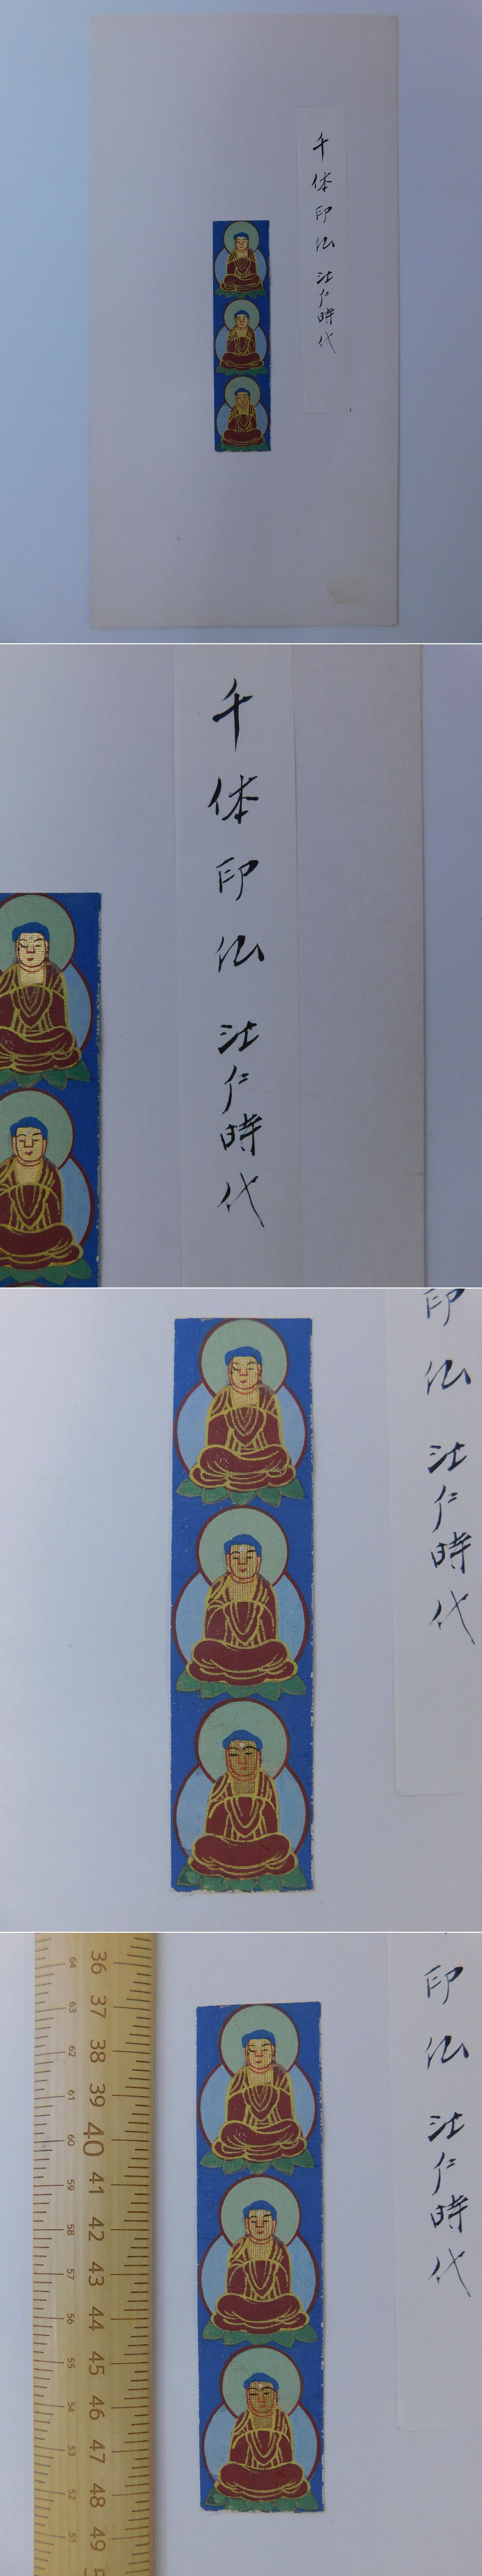 千体印仏 弘仁時代
千体印仏 弘仁時代
印仏 弘仁時代
印仏 弘仁時代
36 37 38 39 40 41 42 43 44 45 46 47 48 49
64 63 62 61 60 59 58 57 56 55 54 53 52 51